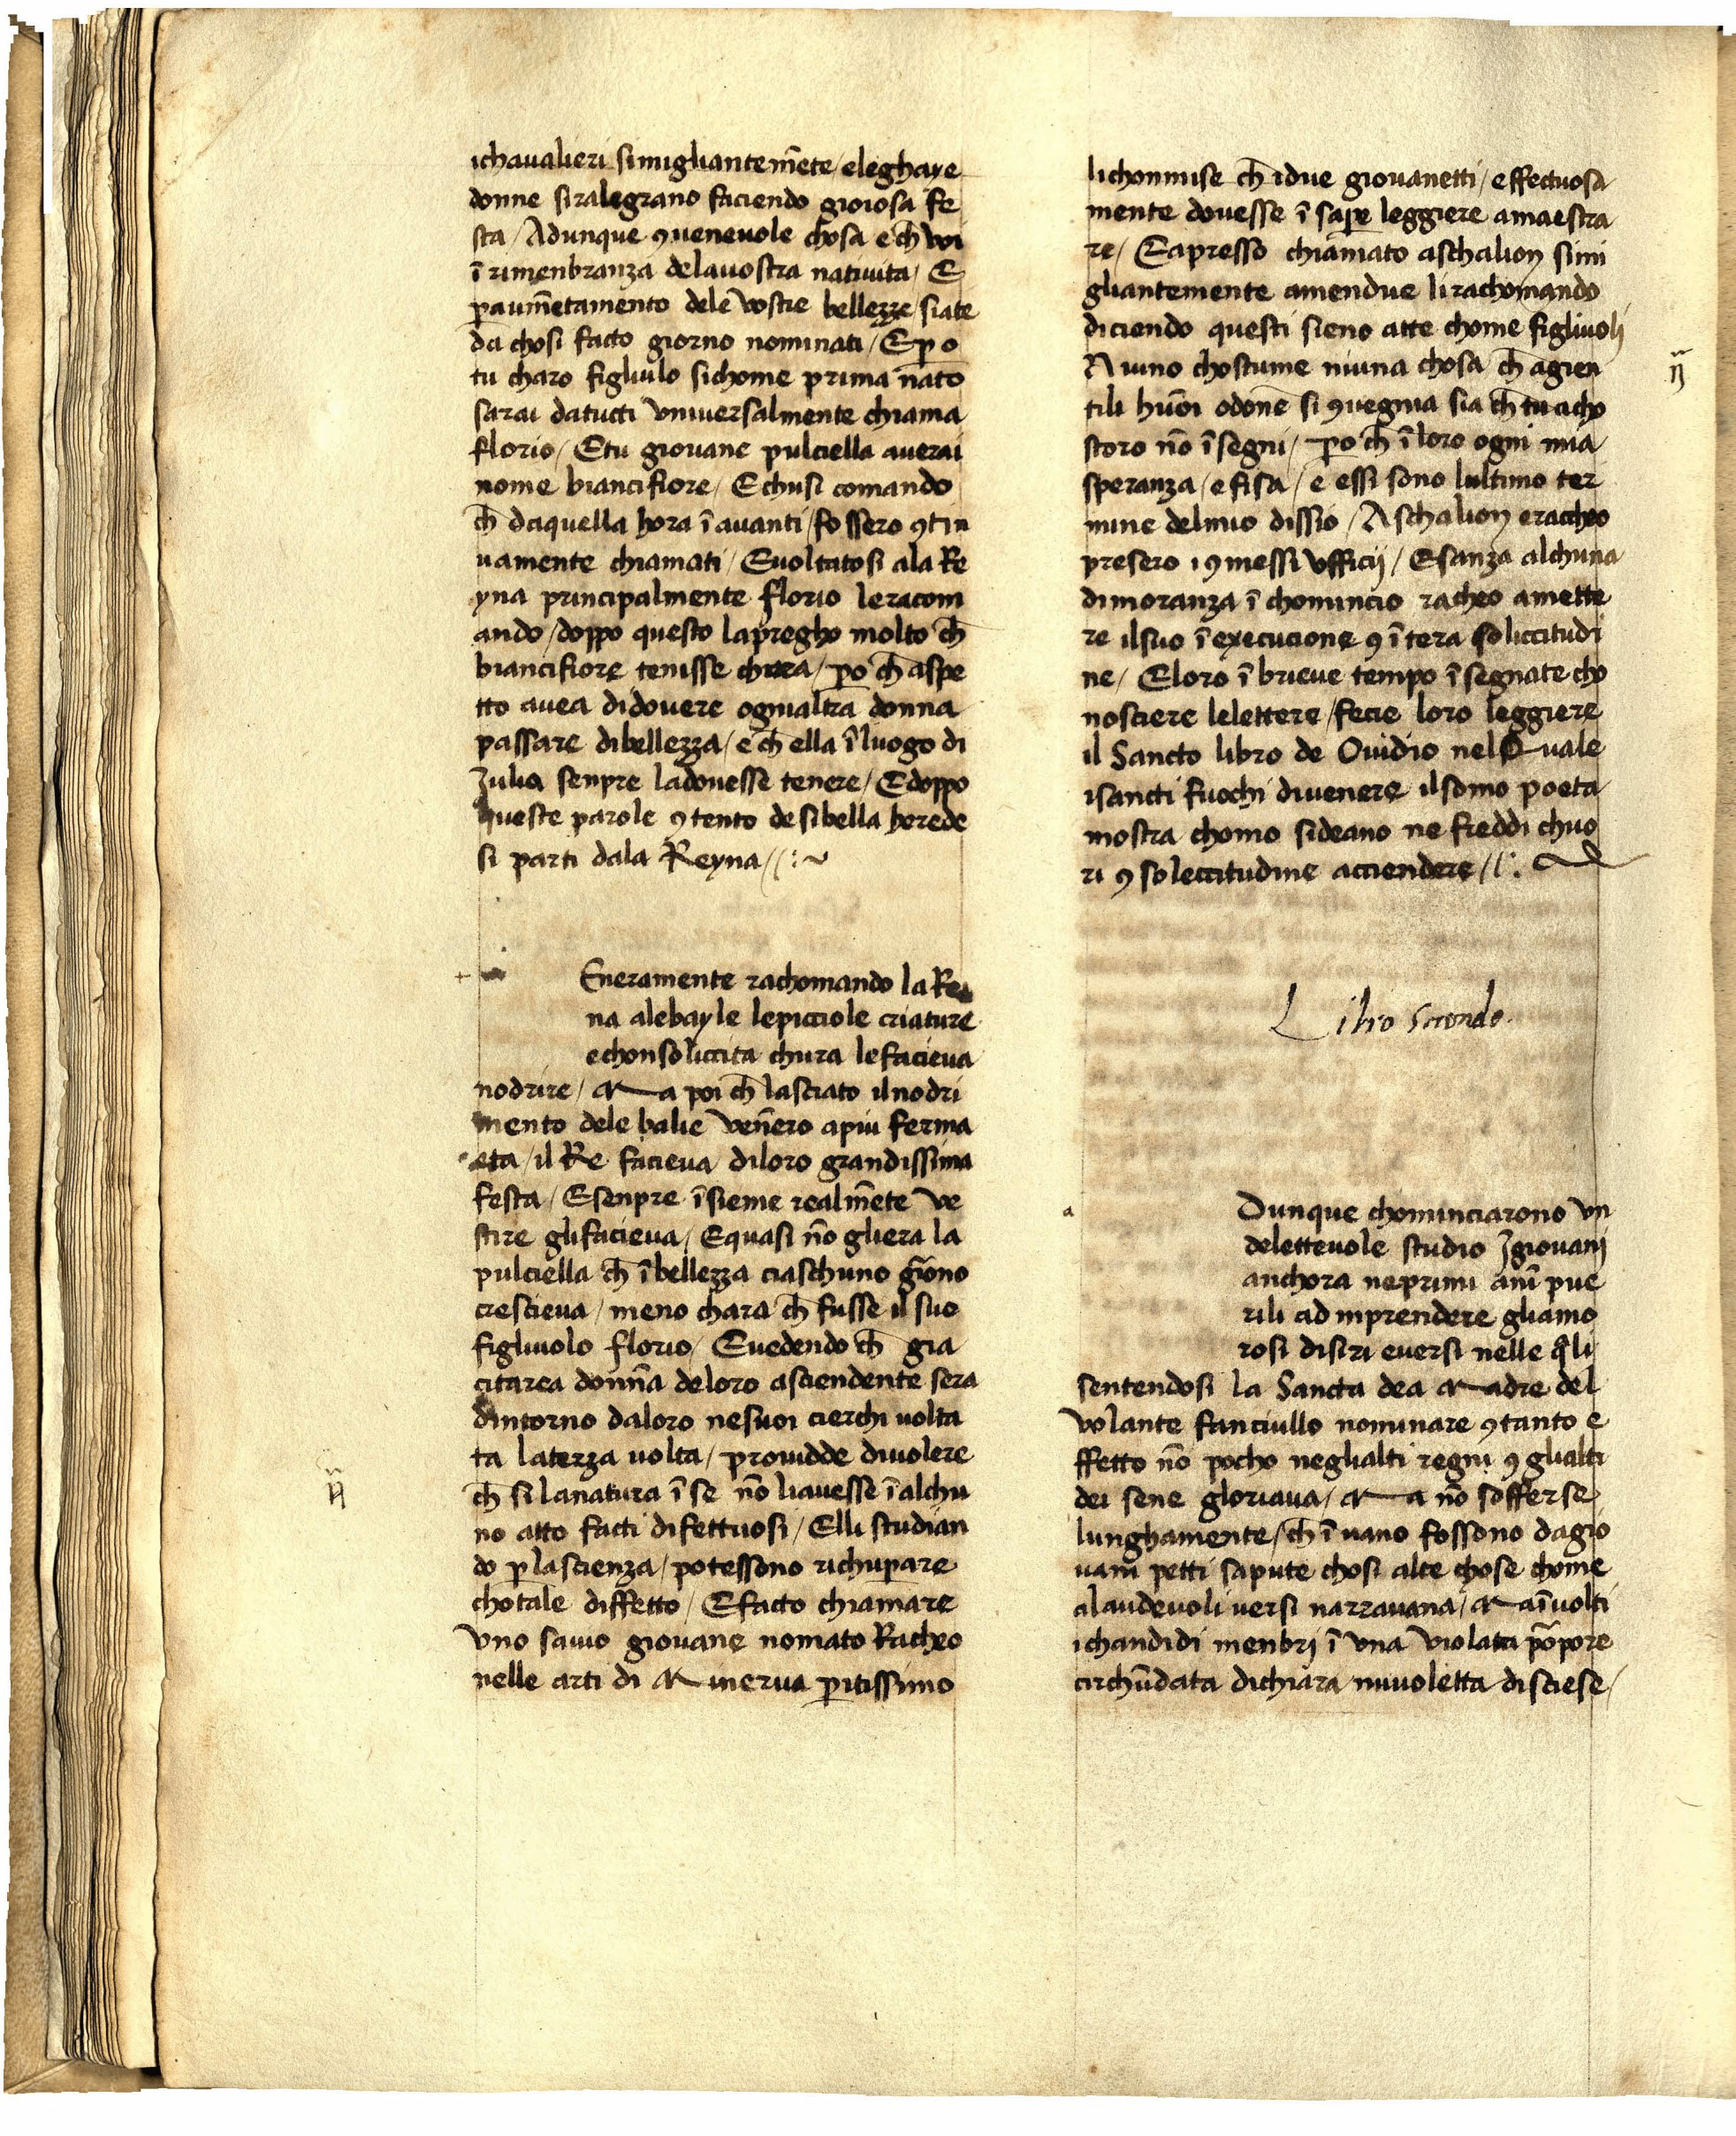 ichaualieri simigliantem̄ete / eleghaye
donne siralegrano faciendo gioiosa fe
sta / Adunque ꝯueneuole chosa e ch̄ voi
ī rimenbranza delauostra natiuita / E
ꝑaum̄etamento dele vostre bellezze siate
da chosi facto giorno nominati / Eꝑo
tu charo figliulo sichome prima nato
sarai datucti vniuersalmente chiama
florio / Etu giouane pulciella auerai
nome biancifiore / Echusi comando
ch̄ daquella hora ī auanti / fossero ꝯtin
uamente chiamati / Euoltatosi ala Re
yna principalmente florio leracom
ando / doppo questo lapregho molto ch̄
biancifiore tenisse chara / ꝑo ch̄ aspe
tto auea didouere ognialtra donna
passare dibellezza / e ch̄ ella ī luogo di
Julia senpre ladouesse tenere / Edoppo
queste parole ꝯtento de sibella herede
si parti dala Reyna //:~
Eneramente rachomando la Rei
na alebayle lepicciole criature
echonsoliccita chura lefacieua
nodrire / Ma poi ch̄ lasciato ilnodri
mento dele balie ven̄ero apiu ferma
eta / il Re facieua diloro grandissima
festa / Esenpre īsieme realm̄ete ve
stire glifacieua / Equasi nō gliera la
pulciella ch̄ ī bellezza ciaschuno giōno
crescieua / meno chara ch̄ fusse il suo
figliuolo florio / Euedendo ch̄ gia
citarea donn̄a deloro asciendente sera
dintorno daloro nesuoi cierchi uolta
ta laterza uolta / prouidde diuolere
ch̄ si lanatura ī se nō liauesse ī alchu
no atto facti difettuosi / Elli studian
do ꝑlascienza / potessono richuꝑare
chotale diffetto / Efacto chiamare
vno sauio giouane nomato Racheo
nelle arti di Minerua ꝑitissimo
lichommise ch̄ idue giouanetti / effectuosa
mente douesse ī saꝑe leggiere amaestra
re / Eapresso chiamato aschalion simi
gliantemente amendue lirachomando
diciendo questi sieno atte chome figliuoli
Niuno chostume niuna chosa ch̄ agien
tili huōi odone si ꝯuegnia sia ch̄ tu acho
storo nō īsegni / ꝑo ch̄ ī loro ogni mia
speranza / e fisa / e essi sono lultimo ter
mine delmio dissio / Aschalion eraccheo
presero i ꝯmessi vfficij / Esanza alchuna
dimoranza ī chomincio racheo amette
re ilsuo ī execucione ꝯ ītera soliccitudi
ne / Eloro ī brieue tempo ī segnate cho
nosciere lelettere / fecie loro leggiere
il Sancto libro de Ouidio nelQuale
isancti fuochi diuenere ilsomo poeta
mostra chomo sideano ne freddi chuo
ri ꝯ soleccitudine acciendere //:~
Libro secondo.
a
Dunque chominciarono vn
deletteuole studio Jgiouani
anchora neprimi anī pue
rili ad inprendere gliamo
rosi disiri euersi nelle q̄li
sentendosi la Sancta dea Madre del
volante fanciullo nominare ꝯtanto e
ffetto nō pocho neglialti regni ꝯ glialti
dei sene gloriaua / Ma nō sofferse
lunghamente / ch̄ ī uano fossono dagio
uani petti sapute chosi alte chose chome
alaudeuoli uersi narrauana / Ma īuolti
ichandidi menbri ī vna violata pōpore
circhūdata dichiara nuuoletta disciese /